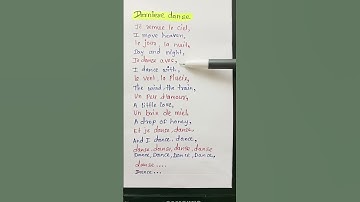 Derniere danse
Je remue le ciel,
I move heaven,
le jour, la nuit,
Day and night,
Je danse avec,
I dance with,
le vent, la pluie,
The wind, the train,
Un peu d'amour,
A little love,
Un brin de miel,
A drop of honey,
Et je danse, danse,
And I dance, dance,
danse, danse, danse, danse
Dance, Dance, Dance, Dance,
danse....
Dance...